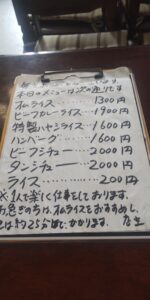 本日のメニューは次の通りです
和ライス……………1300円
ビーフカレーライス…1900円
特製ハヤシライス……1600円
ハンバーグ…………1600円
ビーフシチュー………2000円
タンシチュー…………2000円
ライス………………200円
※1人で楽しく仕事をしております。
お急ぎの方は、和ライスをおすすめし
は約25分ほどかかります。 店主